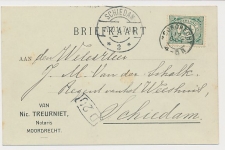 BRIEFKAART
SCHIEDAM
3
AAN den Weledelen Heer
J. M. Van der Schalk.
Regent van het Weeshuis,
Schiedam.
VON
Nic. TREURNIET,
Notaris
MOORDRECHT.